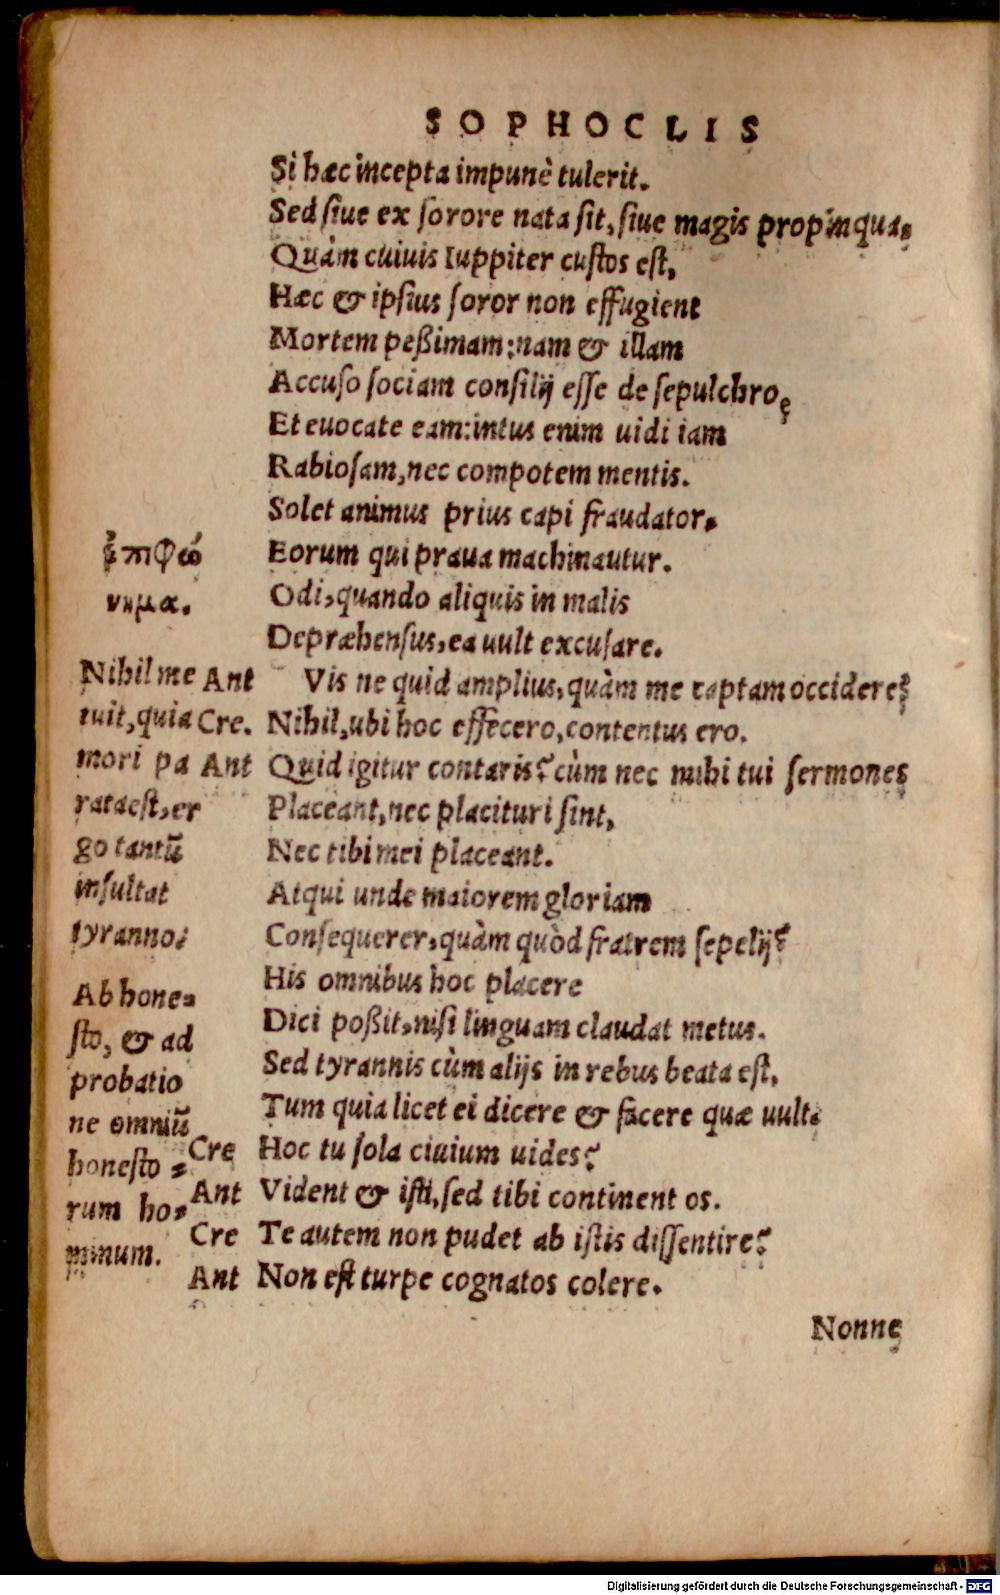 SOPHOCLIS
Si hæc incepta impunè tulerit.
Sed siue ex sorore nata sit, siue magis propinqua,
Quàm cuiuis Iuppiter custos est,
Hæc & ipsius soror non effugient
Mortem peßimam: nam & illam
Accuso sociam consilij esse de sepulchro,
Et euocate eam: intus enim uidi iam
Rabiosam, nec compotem mentis.
Solet animus prius capi fraudator,
ἐπιφώ
Eorum qui praua machinautur.
νημα.
Odi, quando aliquis in malis
Depræhensus, ea uult excusare.
Nihil me
Ant Vis ne quid amplius, quàm me captam occidere?
tuit, quia
Cre. Nihil, ubi hoc effecero, contentus ero.
mori pa
Ant Quid igitur contaris? cùm nec mihi tui sermones
rata est, er
Placeant, nec placituri sint,
go tantũ
Nec tibi mei placeant.
insultat
Atqui unde maiorem gloriam
tyranno.
Consequerer, quàm quòd fratrem sepelij?
His omnibus hoc placere
Ab hone-
Dici poßit, nisi linguam claudat metus.
sto, & ad
Sed tyrannis cùm alijs in rebus beata est,
probatio
ne omniũ
Tum quia licet ei dicere & facere quæ uult.
honesto -
Cre Hoc tu sola ciuium uides?
rum ho-
Ant Vident & isti, sed tibi continent os.
minum.
Cre Te autem non pudet ab istis dissentire?
Ant Non est turpe cognatos colere.
Nonne
Digitalisierung gefördert durch die Deutsche Forschungsgemeinschaft - DFG